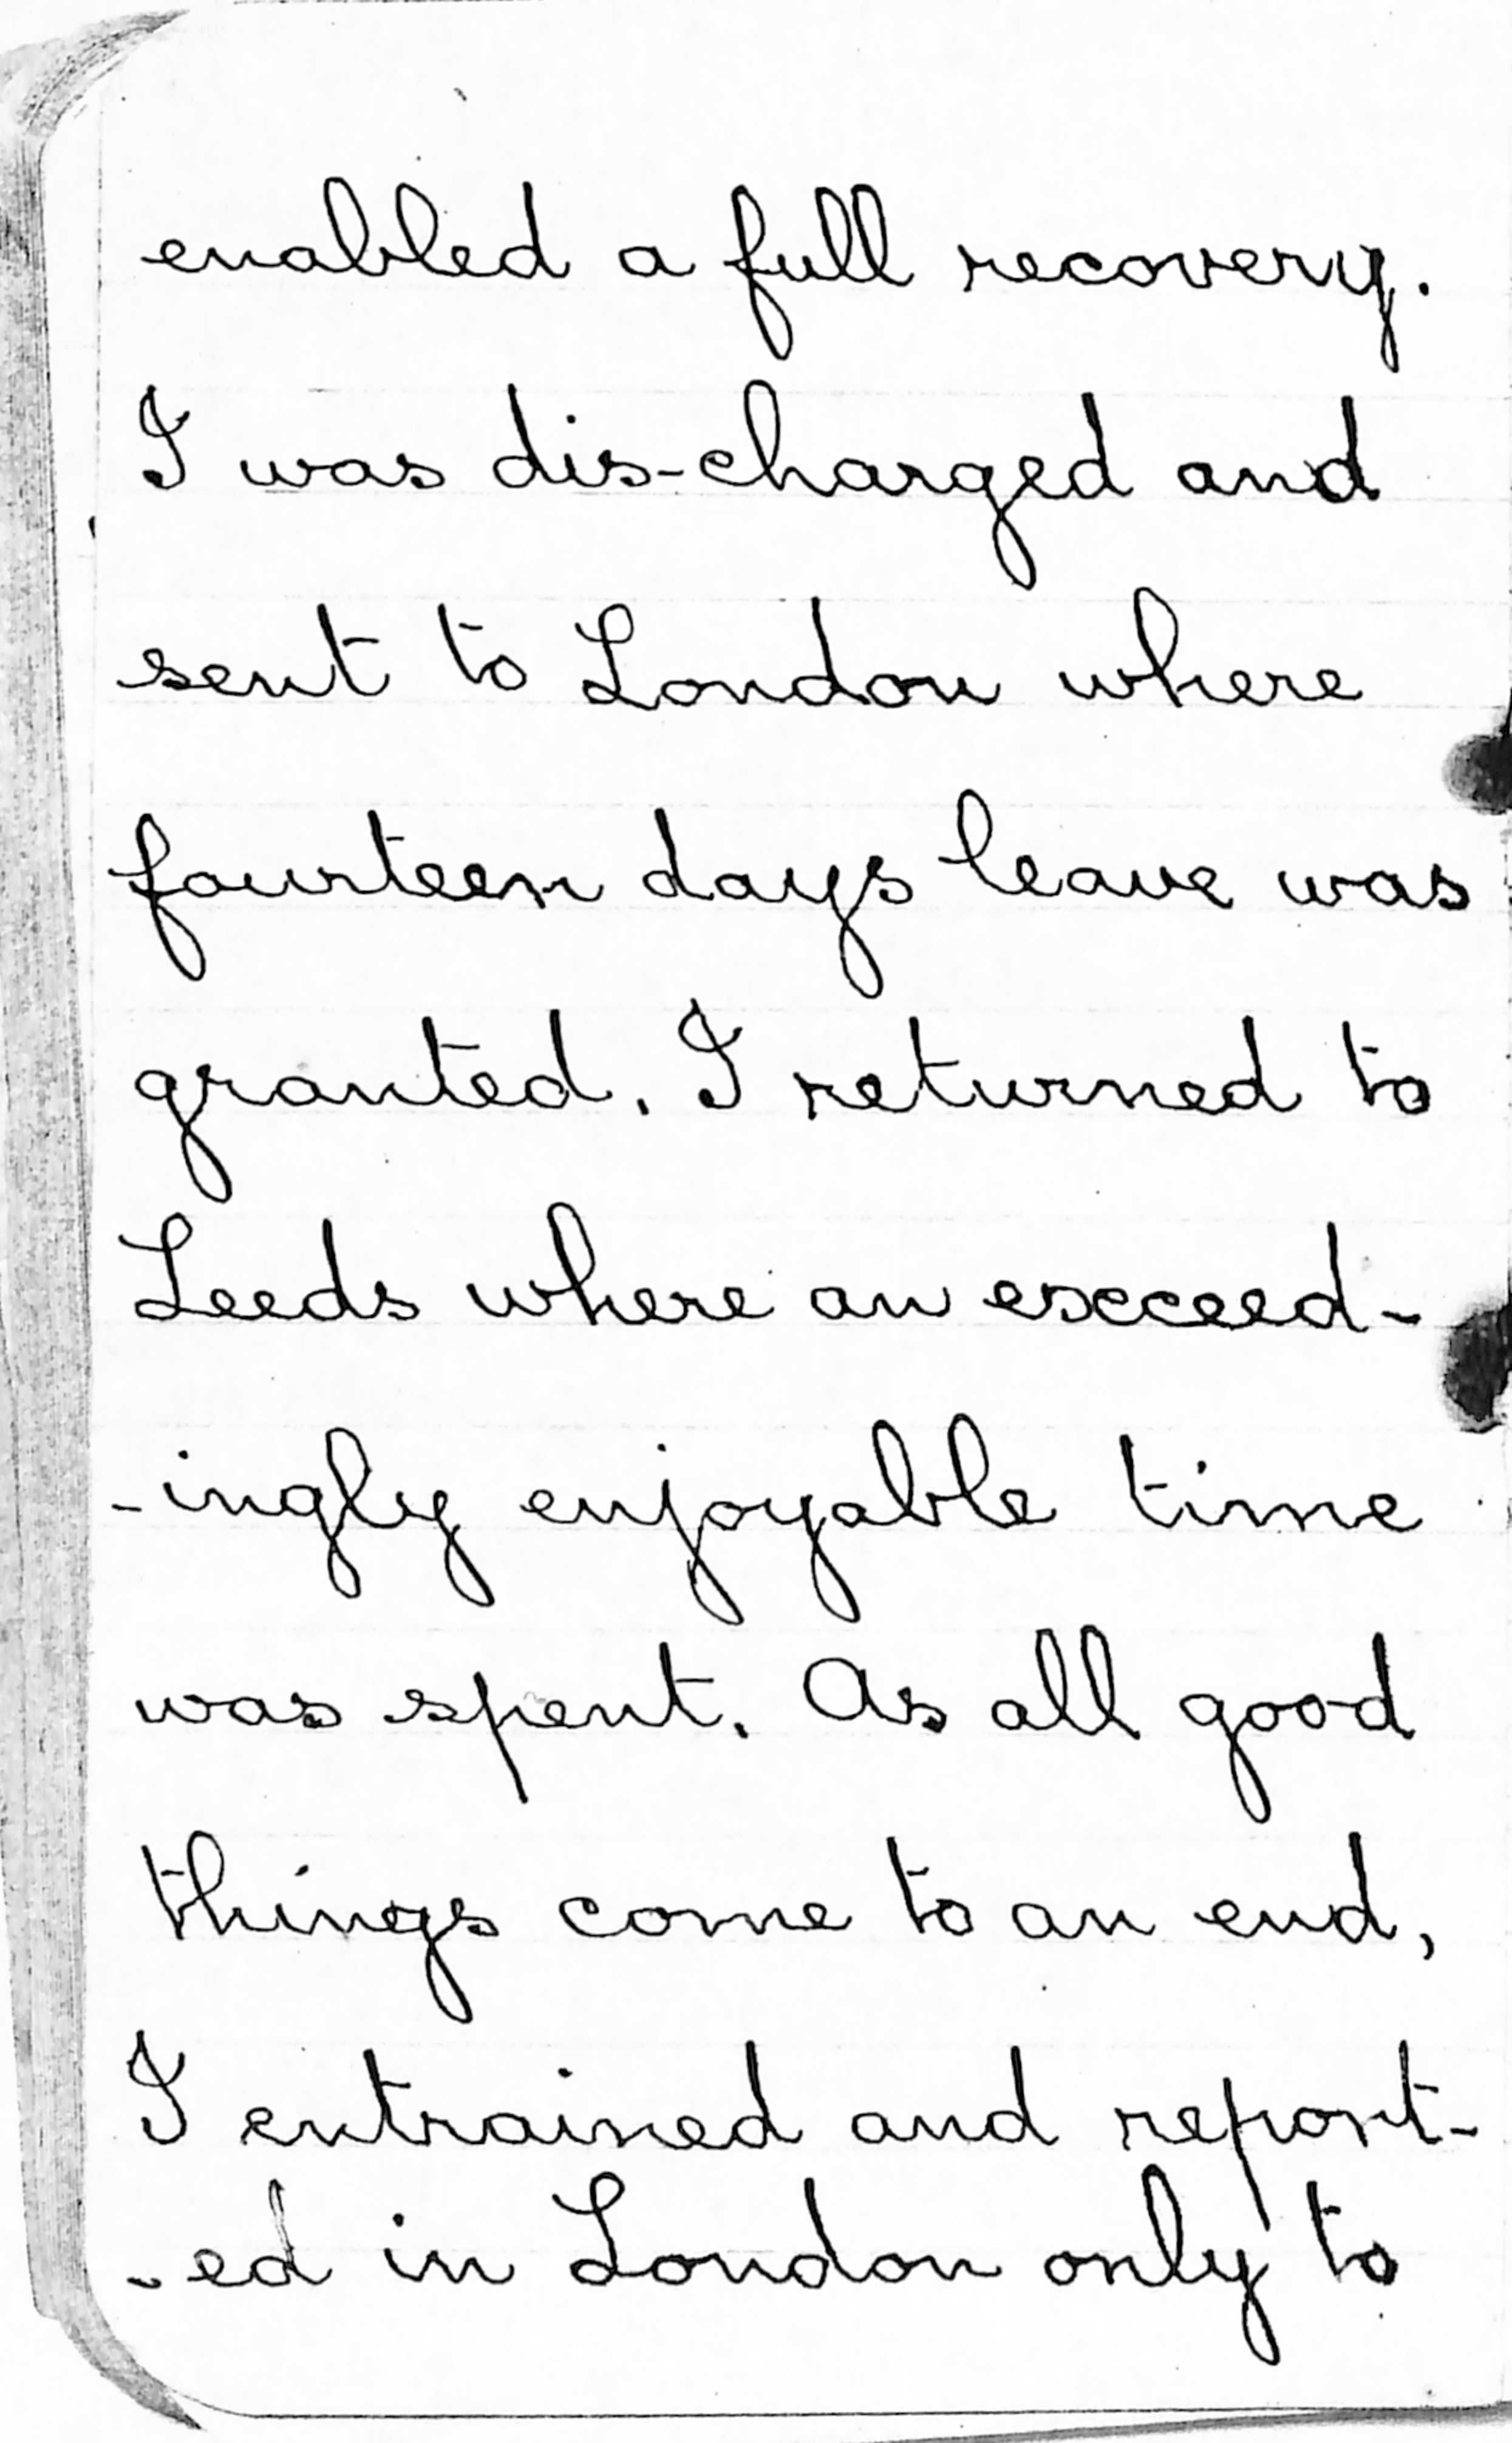 enabled a full recovery.
I was dis-charged and
sent to London where
fourteen days leave was
granted. I returned to
Leeds where an exceed-
-ingly enjoyable time
was spent. As all good
things come to an end,
I entrained and report-
-ed in London only to